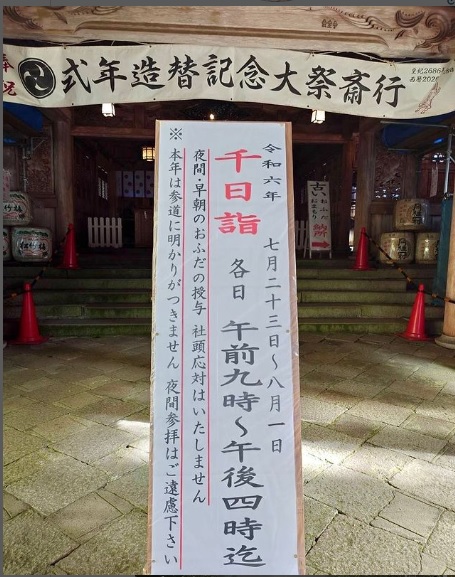 奉祝
式年造替記念大祭斎行
令和六年
七月二十三日～八月一日
千日詣
各日 午前九時～午後四時迄
夜間・早朝のおふだの授与 社頭応対はいたしません
※本年は参道に明かりがつきません 夜間参拝はご遠慮下さい
古い
おふだ
おまもり
納所
松竹梅